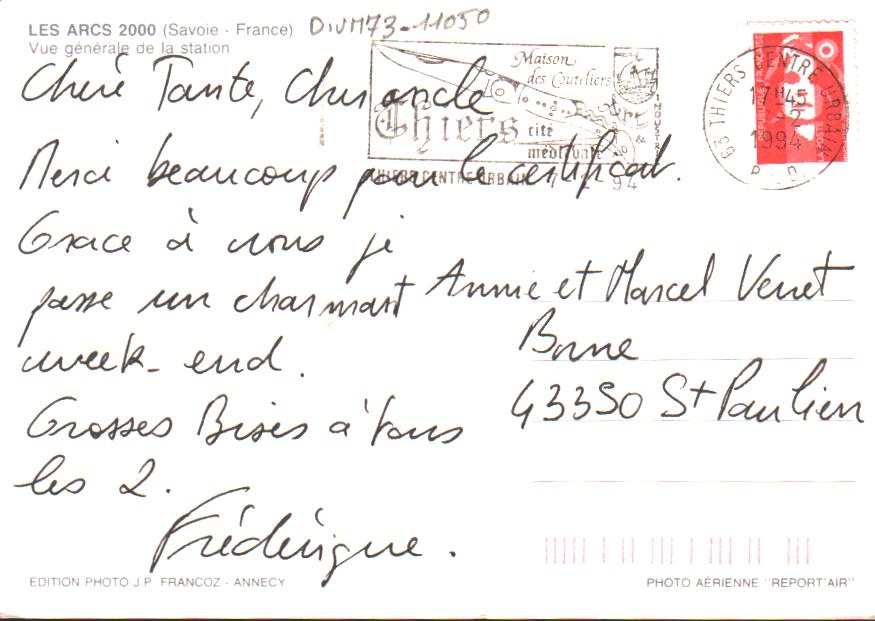 LES ARCS 2000 (Savoie - France)
Vue générale de la station
DIVM73-11050
Maison
des Couteliers
Thiers cité
médiévale
&
INDUSTRIE
THIERS CENTRE URBAIN 7-2 94
63 THIERS CENTRE URBAIN
17H45
7-2
1994
P.D.
REPUBLIQUE FRANÇAISE
LA POSTE
Chère Tante, Cher oncle
Merci beaucoup pour le certificat.
Grace à vous je
passe un charmant
week-end.
Grosses Bises à tous
les 2.
Frédérique.
Annie et Marcel Verret
Borne
43350 St Paulien
EDITION PHOTO J.P. FRANCOZ - ANNECY
PHOTO AÉRIENNE "REPORT'AIR"